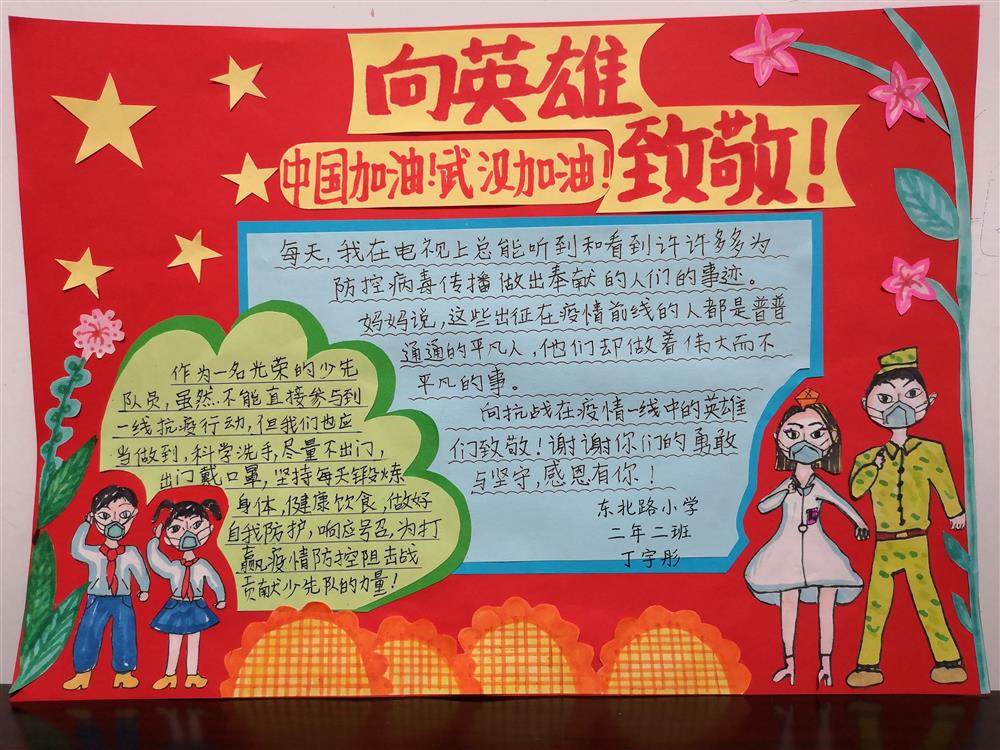 向英雄
致敬！
中国加油！武汉加油！
每天，我在电视上总能听到和看到许许多多为
防控病毒传播做出奉献的人们的事迹。
妈妈说，这些出征在疫情前线的人都是普普
通通的平凡人，他们却做着伟大而不
平凡的事。
向抗战在疫情一线中的英雄
们致敬！谢谢你们的勇敢
与坚守，感恩有你！
东北路小学
二年二班
丁宇彤
作为一名光荣的少先
队员，虽然不能直接参与到
一线抗疫行动，但我们也应
当做到，科学洗手，尽量不出门，
出门戴口罩，坚持每天锻炼
身体，健康饮食，做好
自我防护，响应号召，为打
赢疫情防控阻击战
贡献少先队的力量！